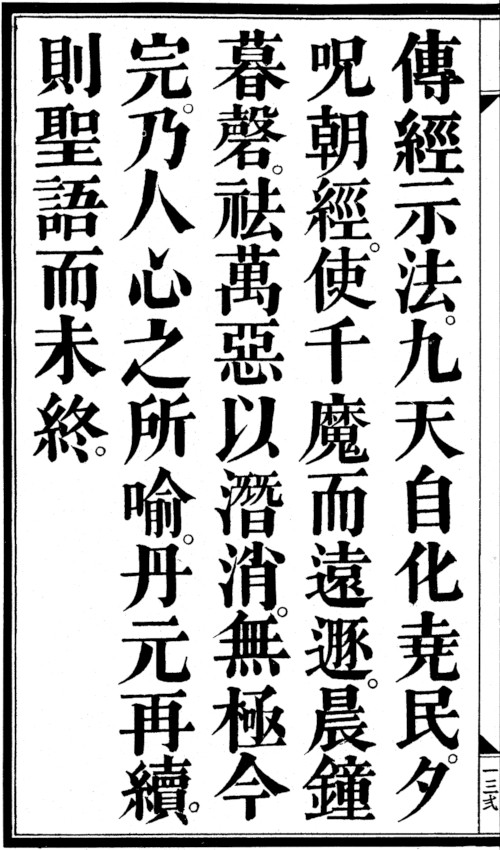 傳經示法。九天自化堯民。夕
呪朝經。使千魔而遠遯。晨鐘
暮磬。祛萬惡以潛消。無極今
完。乃人心之所喻。丹元再續。
則聖語而未終。
一三弍